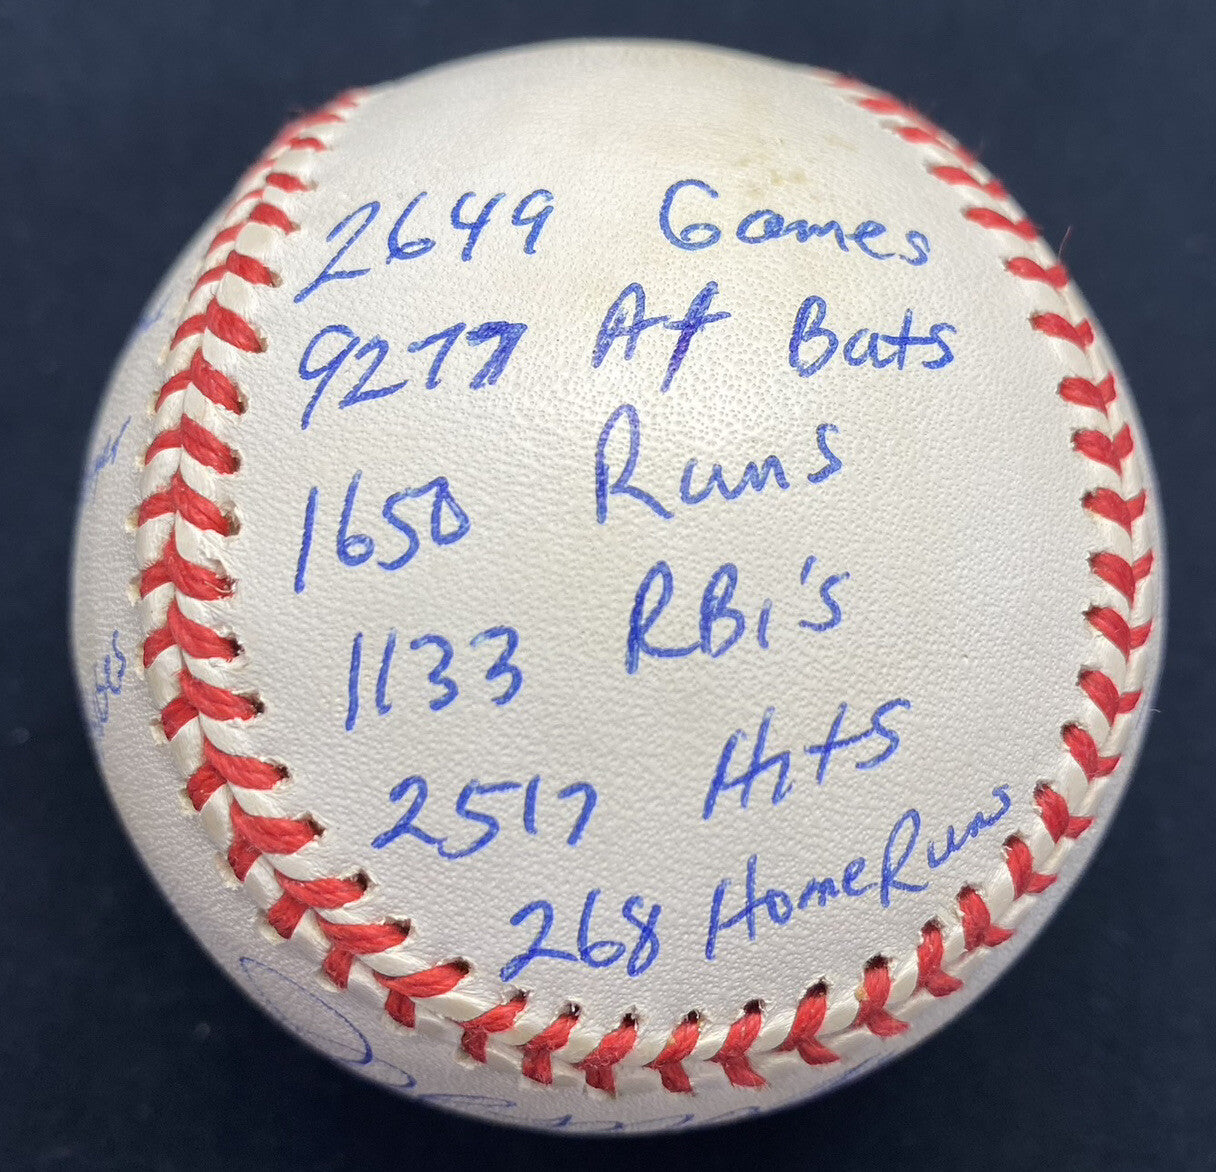 2649 Games
9277 At Bats
1650 Runs
1133 RBI's
2517 Hits
268 Home Runs